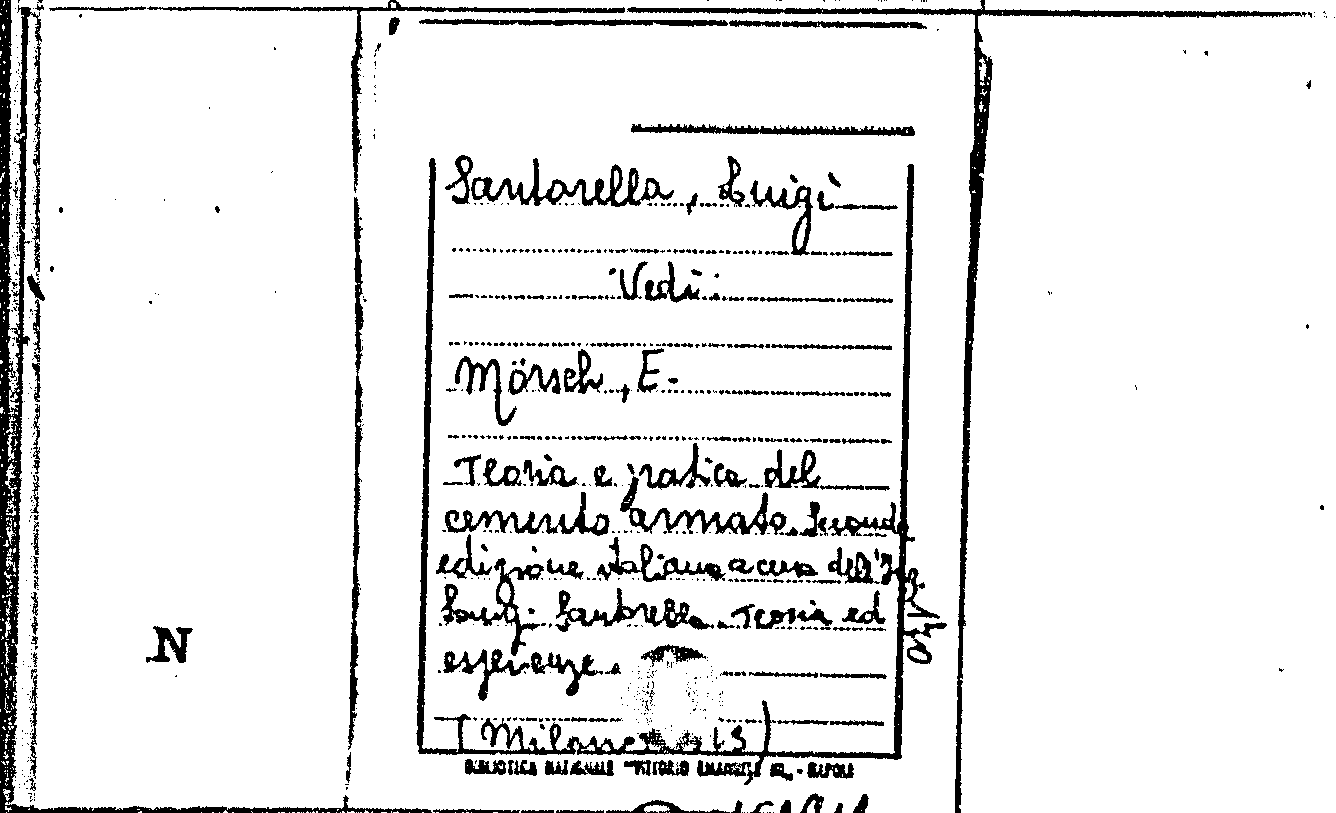 Santorella, Luigi
Vedi:
Mörsch, E.
Teoria e pratica del
cemento armato. Seconda
edizione italiana a cura dell'Ing.
Luigi Santorella. Teoria ed
esperienze.
(Milano
BIBLIOTECA NAZIONALE "VITTORIO EMANUELE III" - NAPOLI
N